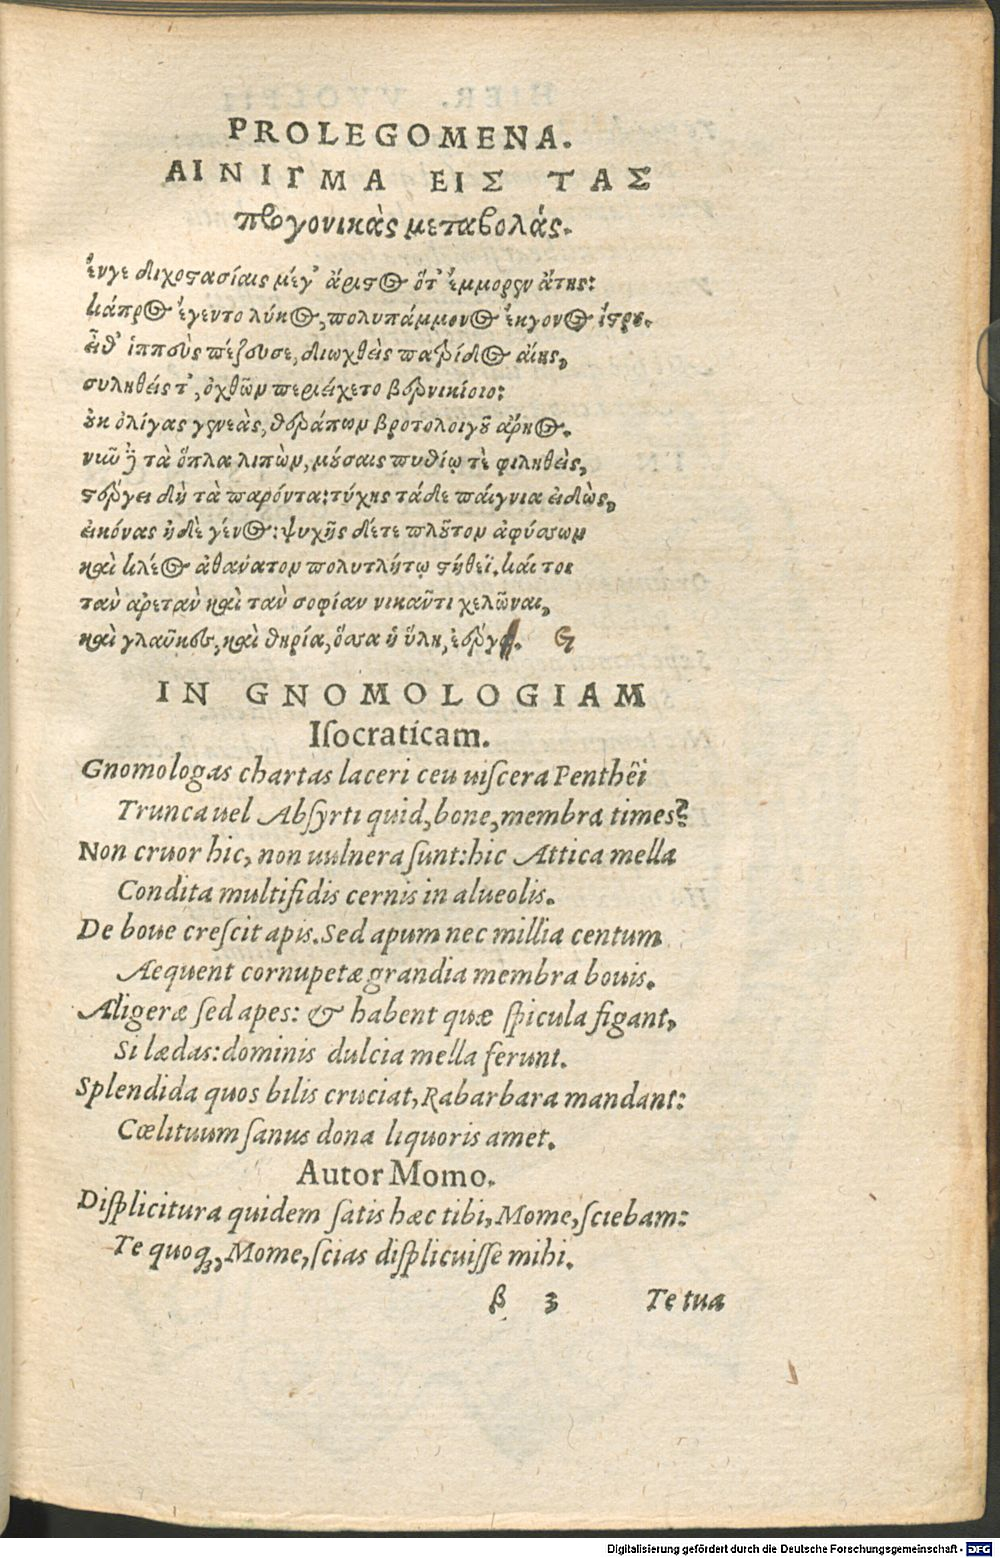 PROLEGOMENA.
ΑΙΝΙΓΜΑ ΕΙΣ ΤΑΣ
πωγονικὰς μεταβολάς.
διχοστασίαις μέγ' ἄριστος ὅτ' ἔμμορεν ἄτης:
κάπρος ἔγεντο λύκος, πολυπάμμονος ἔκγονος
εἶθ' ἱππεὺς πέζευσε, διωχθεὶς πατρίδος αἴης,
συληθείς τ', ὀχθῶν περιείχετο βερνικίοιο:
οὐκ ὀλίγας γενεὰς, θεράπων βροτολοιγοῦ ἄρηος.
νῦν δὴ τὰ ὅπλα λιπὼν, μούσαις πυθίῳ τε φιληθεὶς,
στέργει δὴ τὰ παρόντα: τύχης τάδε παίγνια εἰδὼς,
εἰκόνας ἠδὲ γένος: ψυχῆς δέ τε πλοῦτον ἀφύσσων
καὶ κλέος ἀθάνατον πολυτλήτῳ στήθεϊ. καί τοι
τὰν ἀρετὰν καὶ τὰν σοφίαν νικᾶντι χελῶναι,
καὶ γλαῦκες, καὶ θηρία, ὅσσα ἡ ὕλη,
IN GNOMOLOGIAM
Iſocraticam.
Gnomologas chartas laceri ceu uiſcera Penthêi
Trunca uel Abſyrti quid, bone, membra times?
Non cruor hic, non uulnera ſunt: hic Attica mella
Condita multifidis cernis in alueolis.
De boue creſcit apis. Sed apum nec millia centum
Aequent cornupetæ grandia membra bouis.
Aligeræ ſed apes: & habent quæ ſpicula figant,
Si lædas: dominis dulcia mella ferunt.
Splendida quos bilis cruciat, Rabarbara mandant:
Cœlituum ſanus dona liquoris amet.
Autor Momo.
Diſplicitura quidem ſatis hæc tibi, Mome, ſciebam:
Te quoq;, Mome, ſcias diſplicuiſſe mihi.
β 3 Te tua
Digitalisierung gefördert durch die Deutsche Forschungsgemeinschaft - DFG